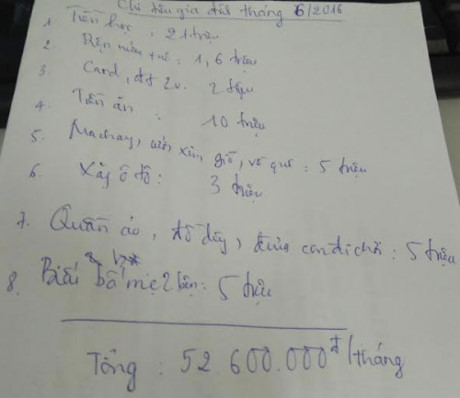 Chi tiêu gia đình tháng 6/2016
1. Tiền học : 21 triệu
2. Điện nước : 1,6 triệu
3. Card, đt 2v. 2 triệu
4. Tiền ăn : 10 triệu
5. Ma chay, cưới xin, giỗ, về quê : 5 triệu
6. Xăng ô tô : 3 triệu
7. Quần áo, đồ dùng, đưa con đi chơi : 5 triệu
8. Biếu bố mẹ 2 bên : 5 triệu
Tổng : 52.600.000đ/tháng